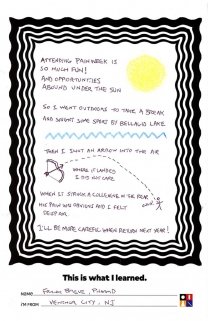 ATTENDING PAINWEEK IS
SO MUCH FUN!
AND OPPORTUNITIES
ABOUND UNDER THE SUN
SO I WENT OUTDOORS TO TAKE A BREAK
AND SPENT SOME TIME BY BELLAGIO LAKE
THEN I SHOT AN ARROW INTO THE AIR
WHERE IT LANDED
I DID NOT CARE
WHEN IT STRUCK A COLLEAGUE IN THE REAR
HIS PAIN WAS OBVIOUS AND I FELT
DESPAIR
I'LL BE MORE CAREFUL WHEN RETURN NEXT YEAR!
This is what I learned.
NAME
I'M FROM VENTNOR CITY, NJ